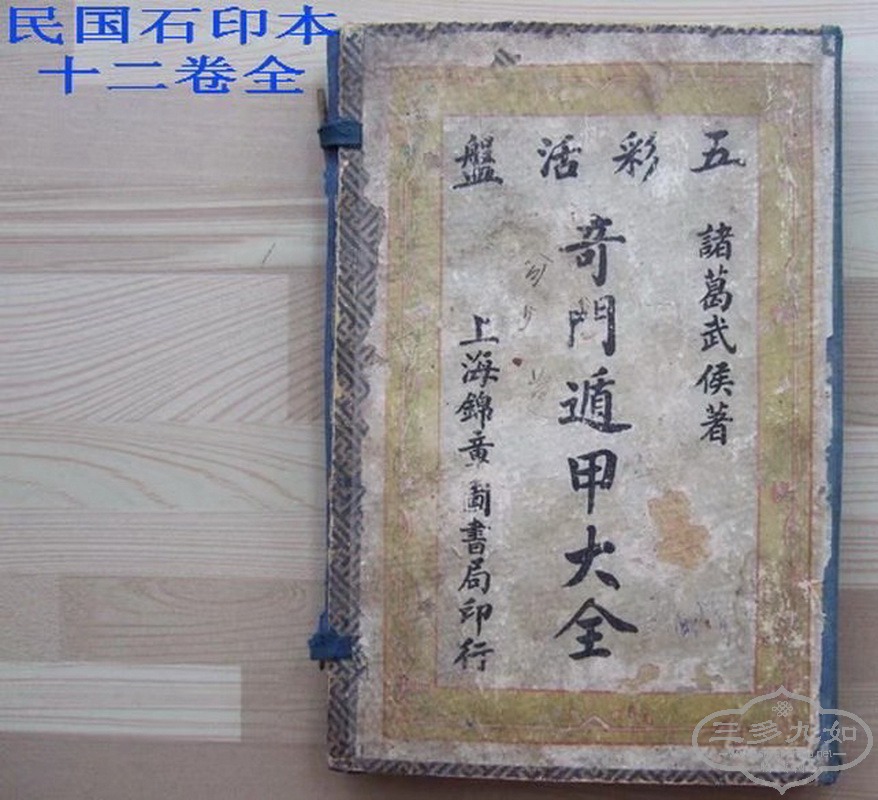 民国石印本
十二卷全
五彩活盤
諸葛武侯著
奇門遁甲大全
上海錦章圖書局印行
三多九如